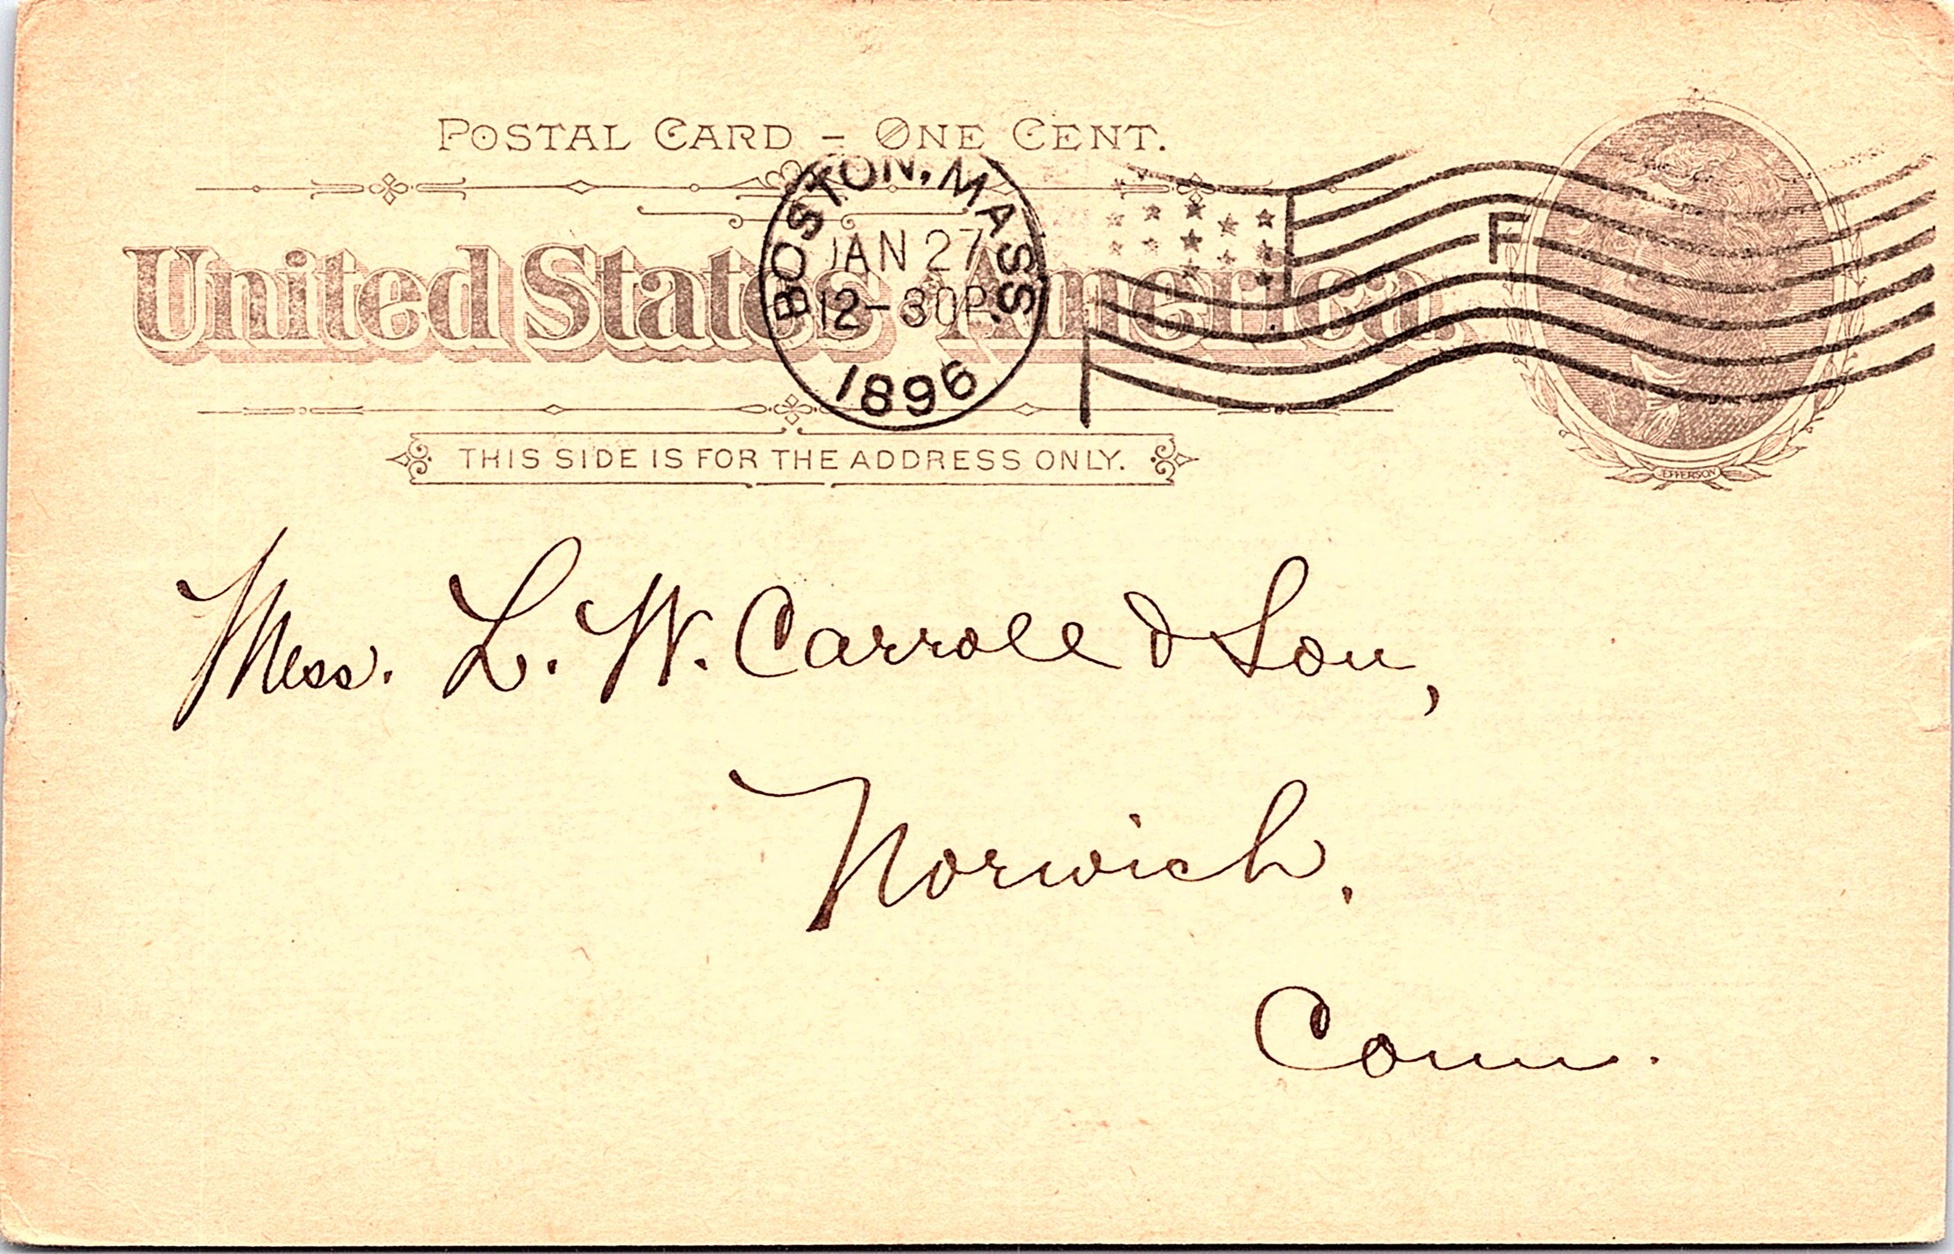 POSTAL CARD – ONE CENT.
United States America.
BOSTON, MASS
JAN 27
12-30P.
1896
F
THIS SIDE IS FOR THE ADDRESS ONLY.
JEFFERSON
Mess. L. W. Carroll & Son,
Norwich.
Conn.